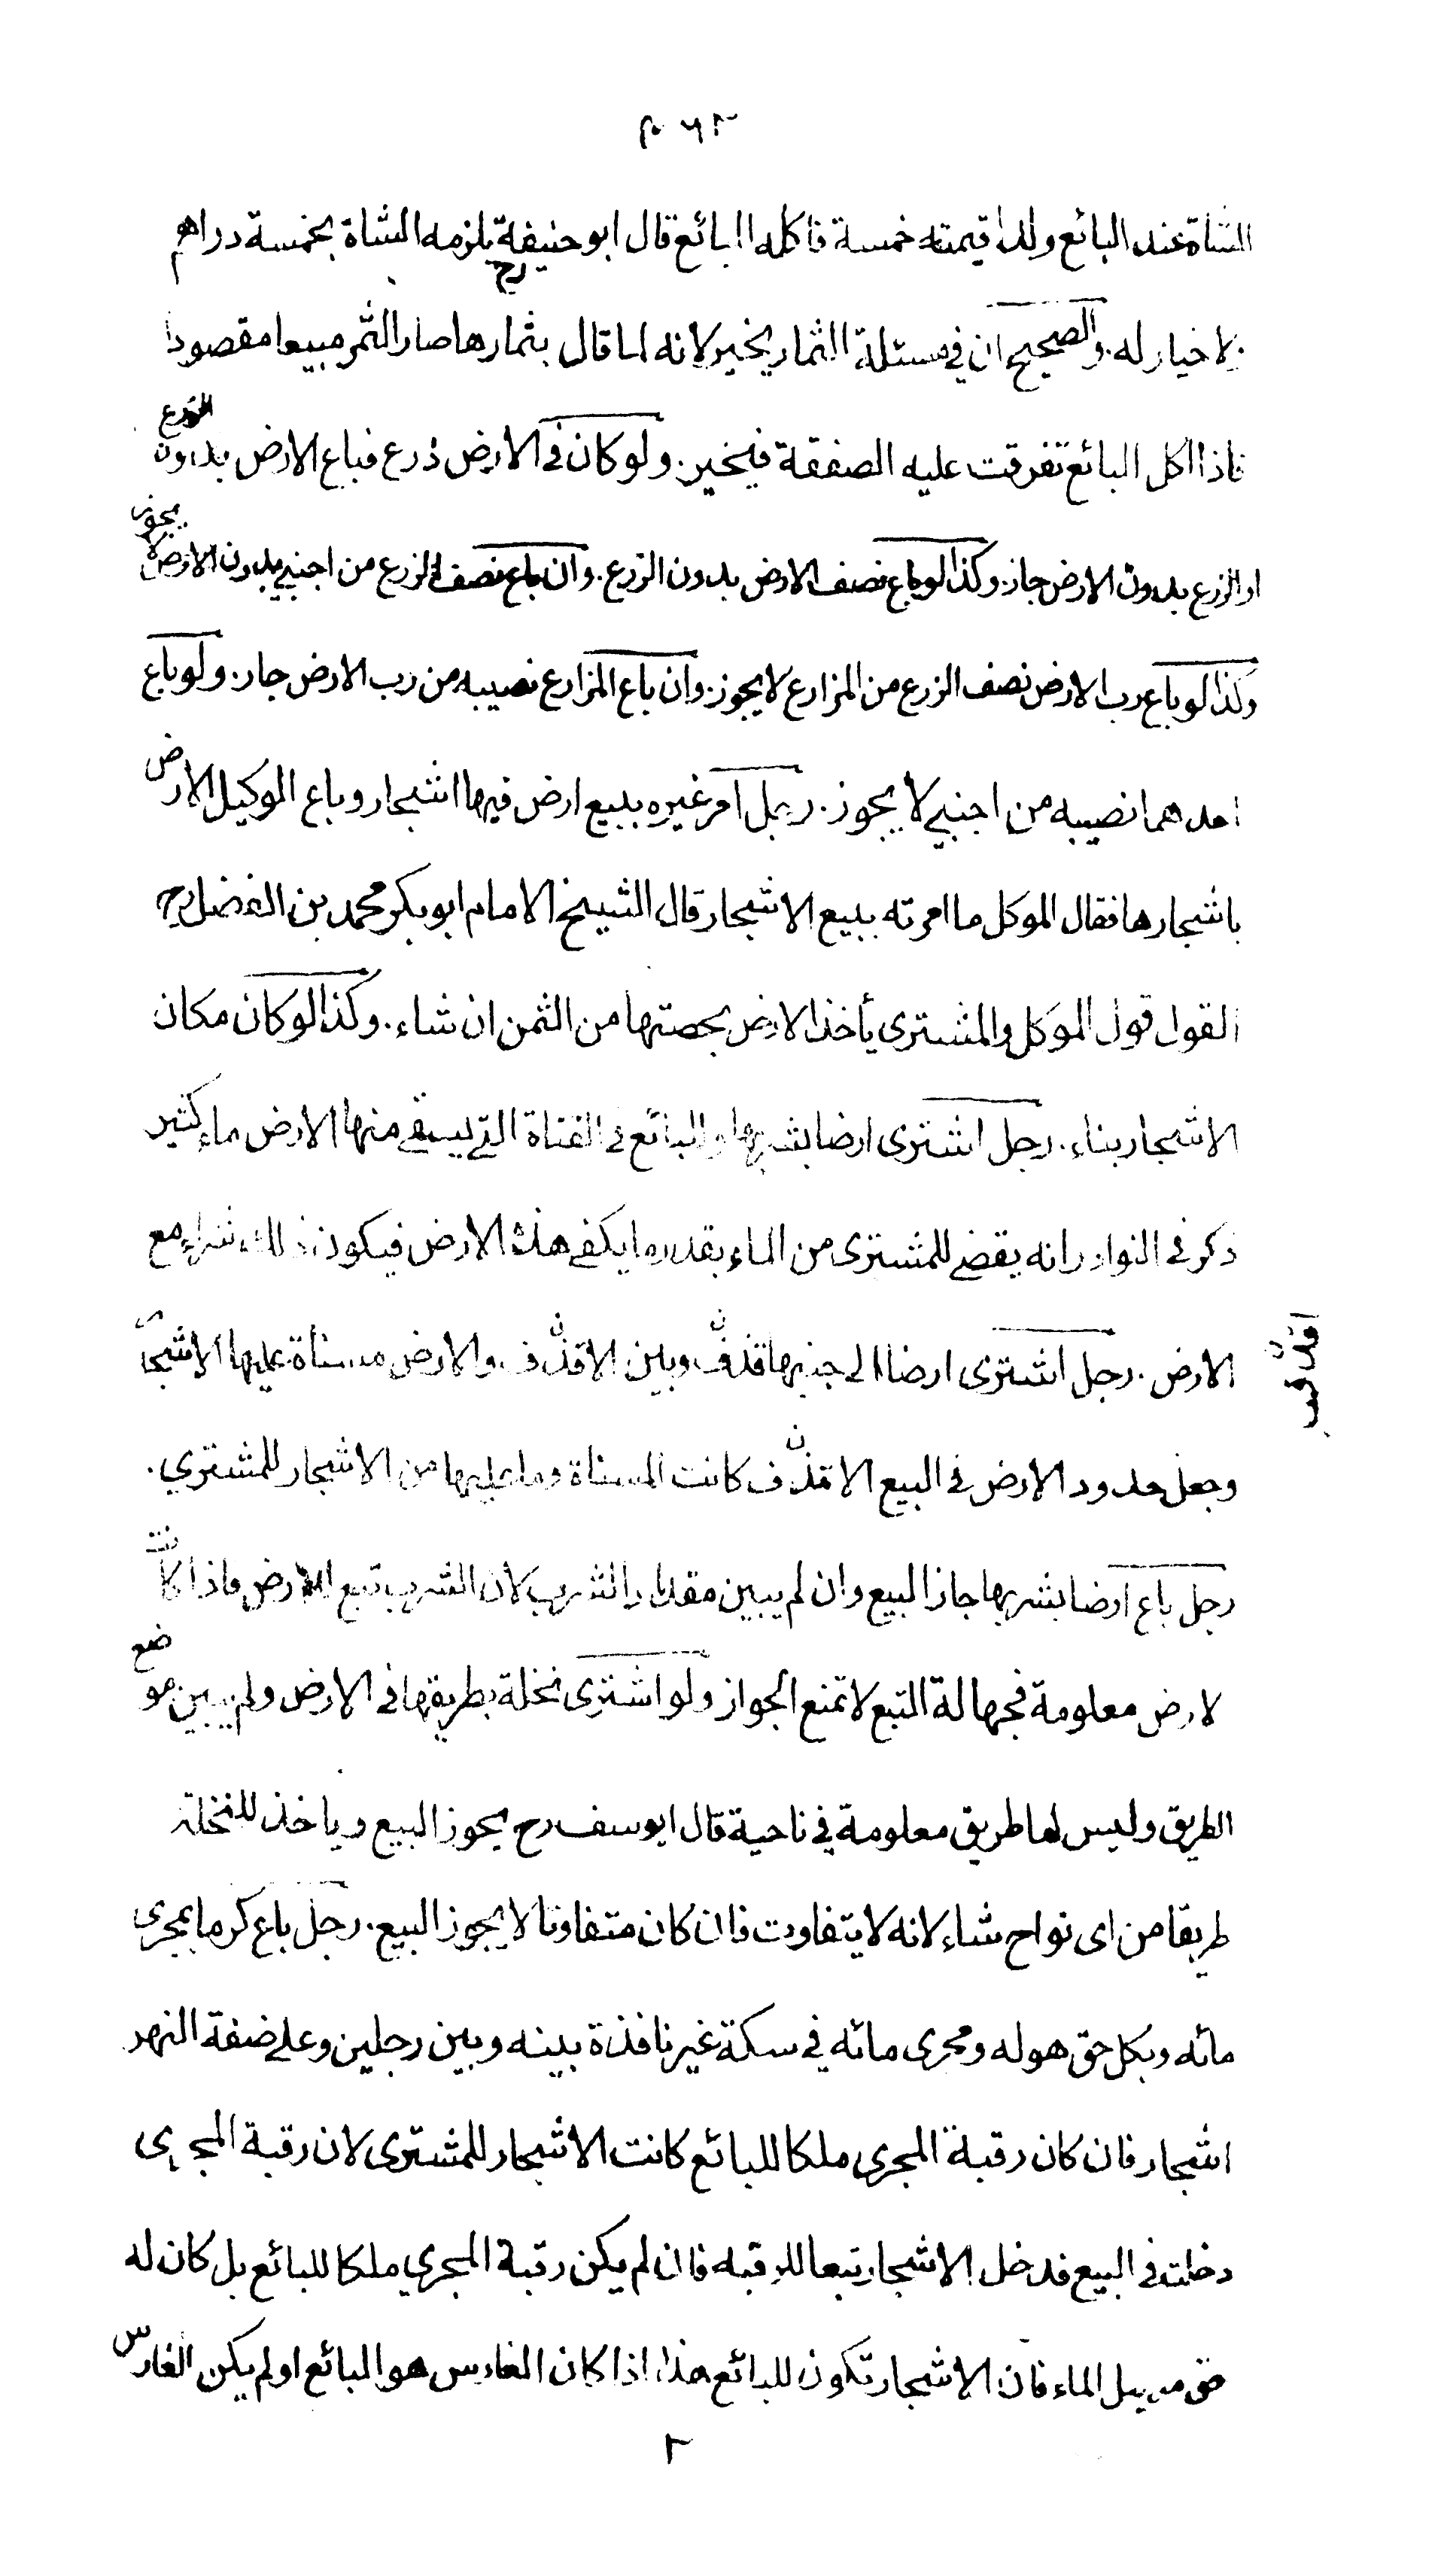 الشاة عند البائع ولدا قيمته خمسة فاكله البائع قال ابو حنيفة رح يلزمه الشاة بخمسة دراهم
لا خيار له. والصحيح ان في مسئلة الثمار يخير لانه لما قال بثمارها صار الثمر مبيعا مقصودا
فاذا اكل البائع تفرقت عليه الصفقة فيخير. ولو كان في الارض زرع فباع الارض بدون الزرع
او الزرع بدون الارض جاز. وكذا لو باع نصف الارض بدون الزرع. وان باع نصف الزرع من اجنبي بدون الارض لا يجوز
وكذا لو باع رب الارض نصف الزرع من المزارع لا يجوز. وان باع المزارع نصيبه من رب الارض جاز. ولو باع
احدهما نصيبه من اجنبي لا يجوز. رجل امر غيره ببيع ارض فيها اشجار وباع الوكيل الارض
باشجارها فقال الموكل ما امرته ببيع الاشجار قال الشيخ الامام ابو بكر محمد بن الفضل رح
القول قول الموكل والمشترى يأخذ الارض بحصتها من الثمن ان شاء. وكذا لو كان مكان
الاشجار بناء. رجل اشترى ارضا بشربها وللبائع في القناة التي يسقى منها الارض ماء كثير
ذكر في النوادر انه يقضى للمشترى من الماء بقدر ما يكفى هذه الارض فيكون ذلك شراء مع
الارض. رجل اشترى ارضا الى جنبها وبين والارض مسناة عليها الاشجار
وجعل حدود الارض في البيع كانت المسناة وما عليها من الاشجار للمشتري.
رجل باع ارضا بشربها جاز البيع وان لم يبين مقدار الشرب لان الشرب تبع للارض فاذا كانت
لارض معلومة فجهالة التبع لا تمنع الجواز ولو اشترى نخلة بطريقها في الارض ولم يبين موضع
الطريق وليس لها طريق معلومة في ناحية قال ابو سف رح يجوز البيع وياخذ للنخلة
طريقا من اى نواح شاء لانه لا يتفاوت فان كان متفاوتا لا يجوز البيع. رجل باع كرما بمجرى
مائه وبكل حق هو له ومجرى مائه في سكة غير نافذة بينه وبين رجلين وعلى ضفة النهر
اشجار فان كان رقبة المجرى ملكا للبائع كانت الاشجار للمشترى لان رقبة المجرى
دخلت في البيع فدخل الاشجار تبعا للرقبه فان لم يكن رقبة المجري ملكا للبائع بل كان له
حق مسيل الماء فان الاشجار تكون للبائع هذا اذا كان الغارس هو البائع او لم يكن الغارس